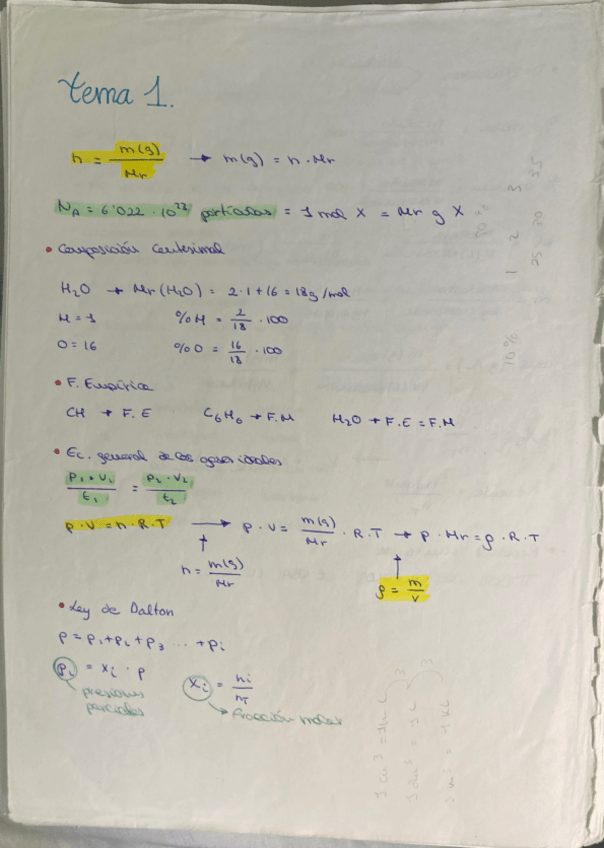 tema 1.
n = m(g)/Mr → m(g) = n·Mr
N_A = 6'022·10^23 partículas = 1 mol X = Mr g X
• Composición Centesimal
H₂O → Mr(H₂O) = 2·1+16 = 18g/mol
H = 1 %H = 2/18 · 100
O = 16 %O = 16/18 · 100
• F. Empírica
CH → F.E C₆H₆ → F.M H₂O → F.E = F.M
• Ec. general de los gases ideales
P₁·V₁/t₁ = P₂·V₂/t₂
P·V = n·R·T → P·V = m(g)/Mr · R·T → P·Mr = ρ·R·T
n = m(g)/Mr
ρ = m/V
• Ley de Dalton
P = P₁+P₂+P₃ ... +Pi
Pi = Xi · P Xi = ni/nT
presiones
parciales
→ fracción molar
10% 1 2 3
25 30 35